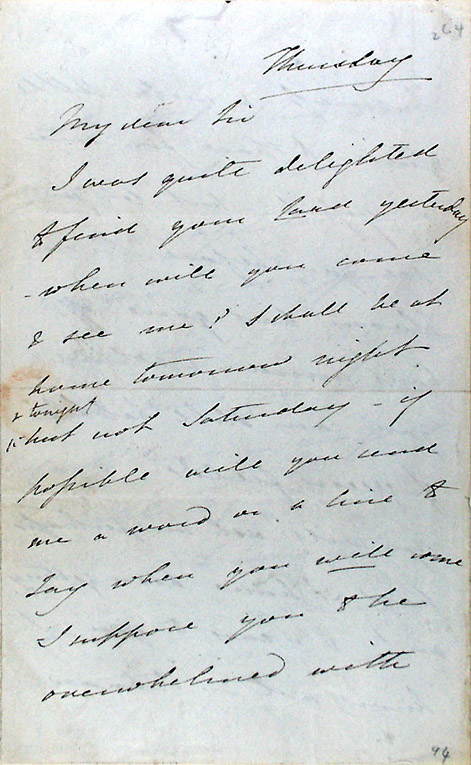 264
Thursday
My dear Sir
I was quite delighted
to find your card yesterday
- when will you come
& see me? I shall be at
home tomorrow night
& tonight
- but not Saturday - if
possible will you send
me a word or a line to
say when you will come
I suppose you to be
overwhelmed with
94